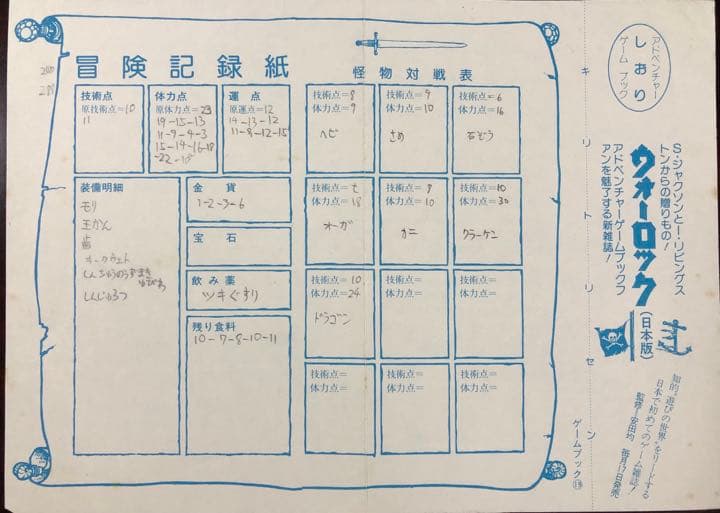 冒険記録紙
怪物対戦表
技術点
原技術点=10
11
体力点
原体力点=23
19-15-13
11-9-4-3
15-14-16-18
運点
原運点=12
14-13-12
11-8-12-15
装備明細
モリ
王かん
歯
しんじゅろつ
金貨
1-2-3-6
宝石
飲み薬
ツキぐすり
残り食料
10-7-8-10-11
技術点=8
体力点=9
ヘビ
技術点=9
体力点=10
さめ
技術点=6
体力点=16
石ぞう
技術点=7
体力点=18
オーガ
技術点=9
体力点=10
カニ
技術点=10
体力点=30
クラーケン
技術点=10
体力点=24
ドラゴン
技術点=
体力点=
技術点=
体力点=
技術点=
体力点=
技術点=
体力点=
技術点=
体力点=
キリトリセン
ゲームブック⑲
アドベンチャー
しおり
ゲームブック
S・ジャクソンとI・リビングス
トンからの贈りもの!
ウォーロック(日本版)
アドベンチャーゲームブックフ
アンを魅了する新雑誌!
知的“遊びの世界”をリードする
日本で初めてのゲーム雑誌!
監修/安田均 毎月17日発売